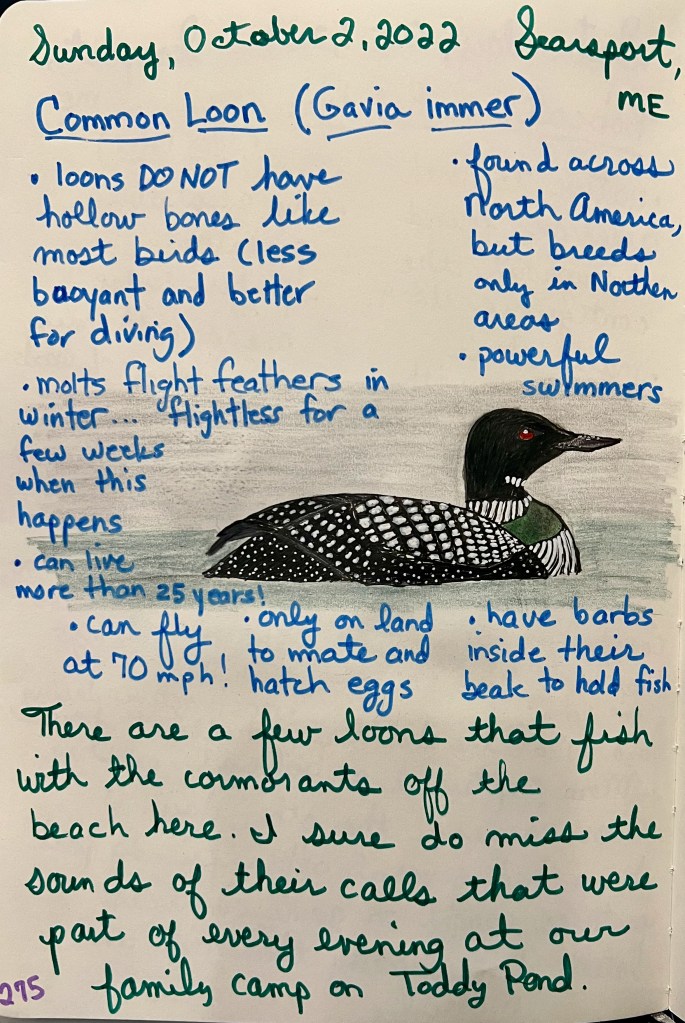 Sunday, October 2, 2022 Searsport,
ME
Common Loon (Gavia immer)
• loons DO NOT have
hollow bones like
most birds (less
buoyant and better
for diving)
• found across
North America,
but breeds
only in Northen
areas
• powerful
swimmers
• molts flight feathers in
winter... flightless for a
few weeks
when this
happens
• can live
more than 25 years!
• can fly
at 70 mph!
• only on land
to mate and
hatch eggs
• have barbs
inside their
beak to hold fish
There are a few loons that fish
with the cormorants off the
beach here. I sure do miss the
sounds of their calls that were
part of every evening at our
family camp on Toddy Pond.
275